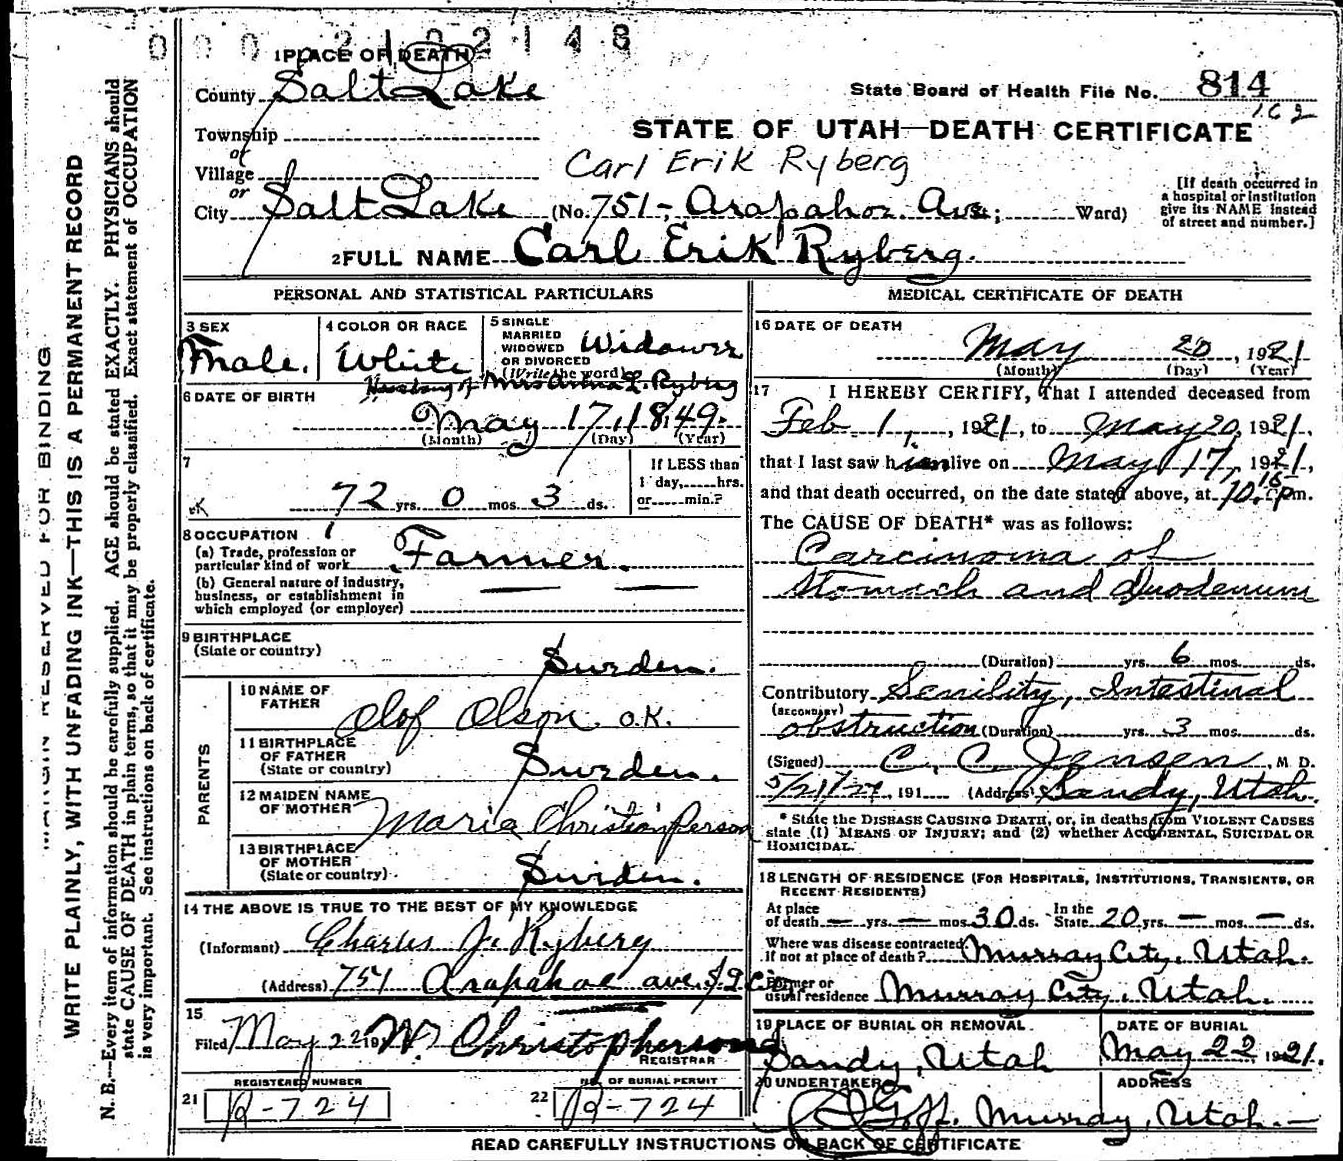 0 0 0 2102148
1 PLACE OF DEATH
County Salt Lake
State Board of Health File No. 814
162
Township
or
STATE OF UTAH—DEATH CERTIFICATE
Village
or
Carl Erik Ryberg
City Salt Lake (No. 751- Arapahoe Ave; Ward)
[If death occurred in a hospital or institution give its NAME instead of street and number.]
2 FULL NAME Carl Erik Ryberg.
PERSONAL AND STATISTICAL PARTICULARS
3 SEX Male.
4 COLOR OR RACE White
5 SINGLE MARRIED WIDOWED OR DIVORCED (Write the word) Widower
Husband of Mrs L. Ryberg
6 DATE OF BIRTH
May 17, 1849.
(Month) (Day) (Year)
7
72 yrs. 0 mos. 3 ds.
If LESS than 1 day, hrs. or min.?
8 OCCUPATION
(a) Trade, profession or particular kind of work Farmer.
(b) General nature of industry, business, or establishment in which employed (or employer)
9 BIRTHPLACE
(State or country) Sweden.
PARENTS
10 NAME OF FATHER Olof Olson O.K.
11 BIRTHPLACE OF FATHER (State or country) Sweden.
12 MAIDEN NAME OF MOTHER Maria Christian Person
13 BIRTHPLACE OF MOTHER (State or country) Sweden.
14 THE ABOVE IS TRUE TO THE BEST OF MY KNOWLEDGE
(Informant) Charles J. Ryberg
(Address) 751 Arapahoe ave. S.L.C.
15
Filed May 22 19 W. Christopherson
REGISTRAR
REGISTERED NUMBER
NO. OF BURIAL PERMIT
21 R-724
22 R-724
MEDICAL CERTIFICATE OF DEATH
16 DATE OF DEATH
May 20, 1921
(Month) (Day) (Year)
17 I HEREBY CERTIFY, That I attended deceased from
Feb 1, 1921, to May 20, 1921,
that I last saw him alive on May 17, 1921,
and that death occurred, on the date stated above, at 10.15 Pm.
The CAUSE OF DEATH* was as follows:
Carcinoma of
Stomach and Duodenum
(Duration) yrs. 6 mos. ds.
Contributory Senility, Intestinal
(SECONDARY)
obstruction (Duration) yrs. 3 mos. ds.
(Signed) C. C. Jensen, M. D.
5/21/21, 191 (Address) Sandy, Utah.
* State the DISEASE CAUSING DEATH, or, in deaths from VIOLENT CAUSES
state (1) MEANS OF INJURY; and (2) whether ACCIDENTAL, SUICIDAL OR
HOMICIDAL.
18 LENGTH OF RESIDENCE (FOR HOSPITALS, INSTITUTIONS, TRANSIENTS, OR
RECENT RESIDENTS)
At place of death — yrs. — mos. 30 ds. In the State 20 yrs. — mos. — ds.
Where was disease contracted if not at place of death? Murray City, Utah.
Former or usual residence Murray City, Utah.
19 PLACE OF BURIAL OR REMOVAL
Sandy, Utah
DATE OF BURIAL
May 22 1921.
20 UNDERTAKER
ADDRESS
Murray, Utah.
READ CAREFULLY INSTRUCTIONS ON BACK OF CERTIFICATE
MARGIN RESERVED FOR BINDING
WRITE PLAINLY, WITH UNFADING INK—THIS IS A PERMANENT RECORD
N. B.—Every item of information should be carefully supplied. AGE should be stated EXACTLY. PHYSICIANS should
state CAUSE OF DEATH in plain terms, so that it may be properly classified. Exact statement of OCCUPATION
is very important. See instructions on back of certificate.